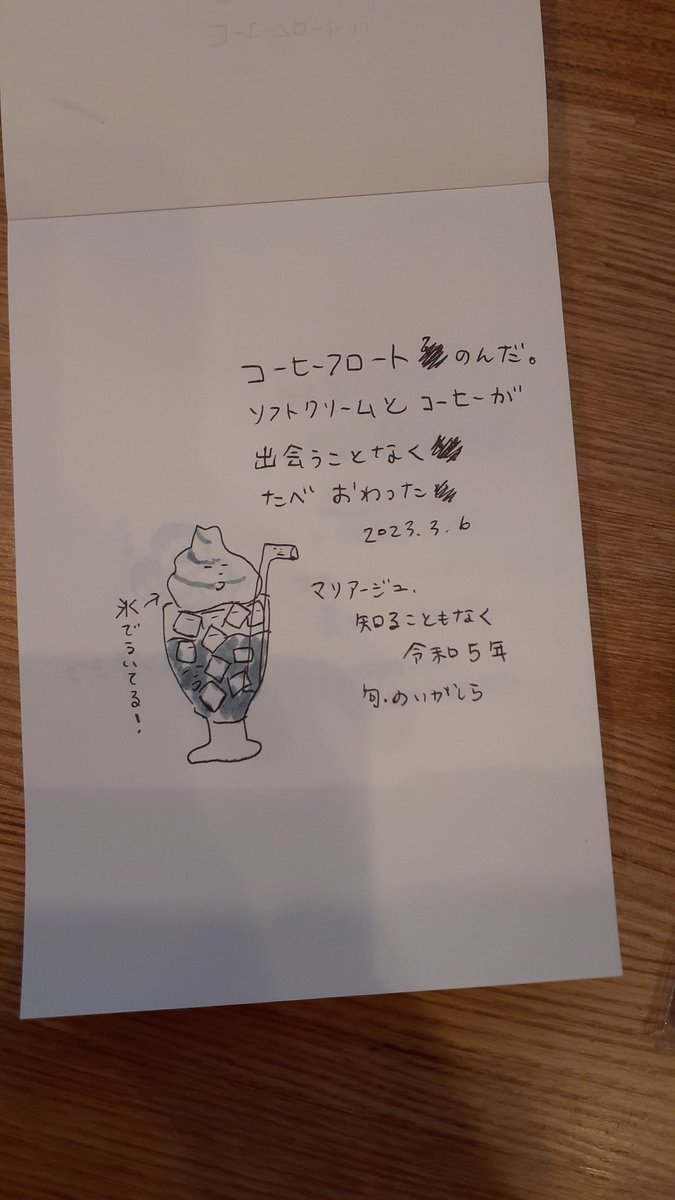 コーヒーフロート のんだ。
ソフトクリームと コーヒーが
出会うことなく
たべ おわった
2023.3.6
マリアージュ、
知ることもなく
令和5年
句.めいがしら
氷でういてる!